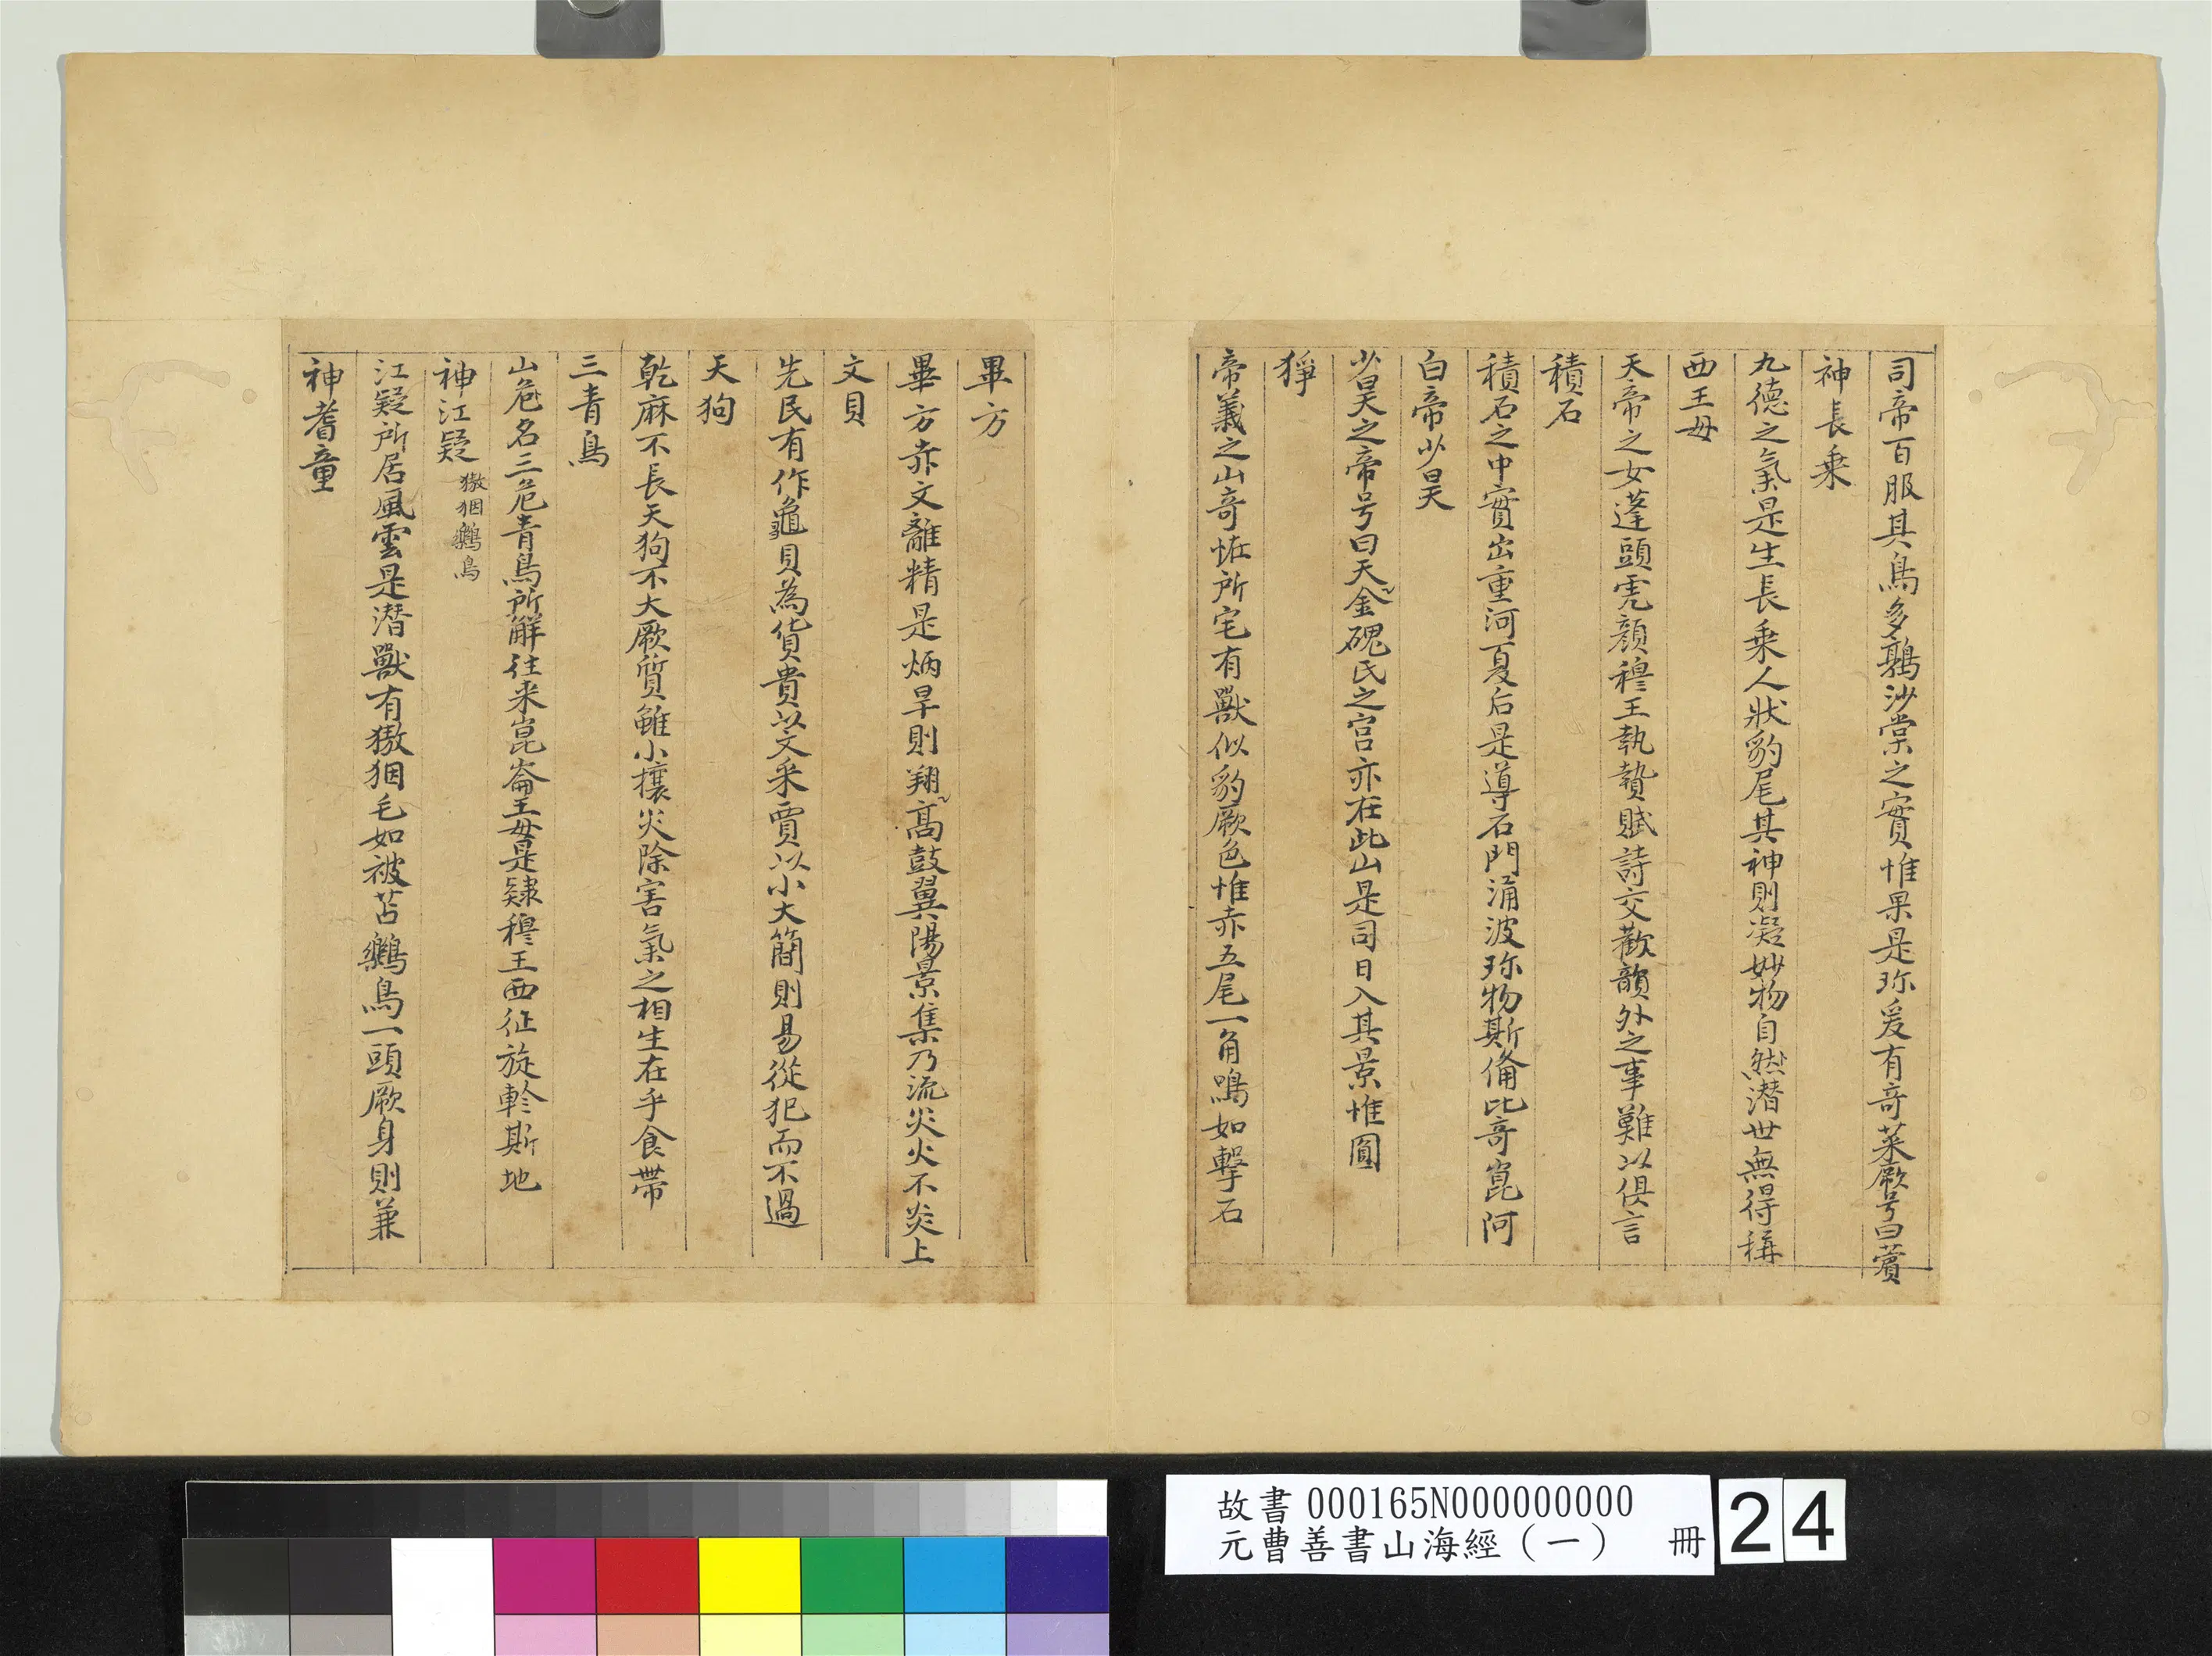 司帝百服其鳥多鶉沙棠之實惟果是珎爰有奇菜厥号曰薲
神長乗
九德之氣是生長乗人狀豹尾其神則凝妙物自然潛世無得稱
西王母
天帝之女蓬頭虎顔穆王執贄賦詩交歡韻外之事難以俱言
積石
積石之中實出重河夏后是導石門涌波珎物斯俻比奇崑阿
白帝少昊
少昊之帝号曰天金磈氏之宫亦在此山是司日入其景惟圓
狰
帝義之山奇恠所宅有獸似豹厥色惟赤五尾一角鳴如擊石
畢方
畢方赤文離精是炳旱則翔高鼓翼陽景集乃流災火不炎上
文貝
先民有作龜貝為貨貴以文采賈以小大簡則易從犯而不過
天狗
乾麻不長天狗不大厥質雖小攘災除害氣之相生在乎食帶
三青鳥
山危名三危青鳥所解往来崑崙王母是隸穆王西征旋軫斯地
神江疑 獓𤝱鸉鳥
江疑所居風雲是潛獸有獓𤝱毛如被苫鸉鳥一頭厥身則兼
神耆童
故書 000165N000000000
元曹善書山海經（一） 冊 24